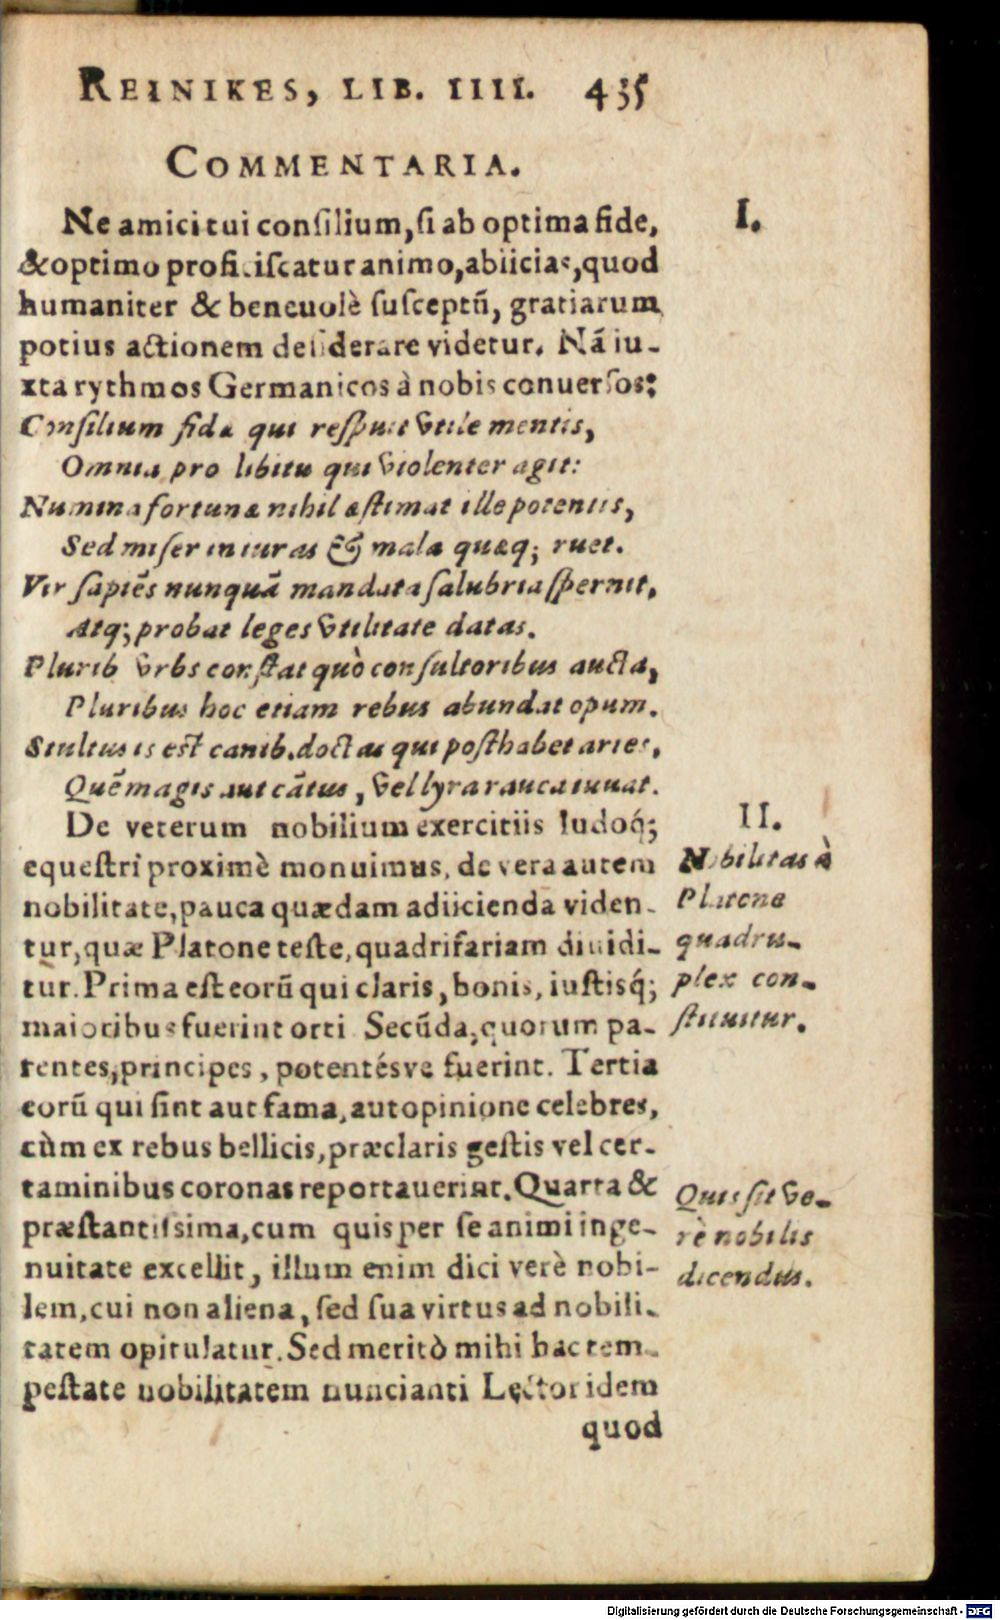 REINIKES, LIB. IIII. 435
COMMENTARIA.
Ne amici tui consilium, si ab optima fide,
& optimo proficiscatur animo, abiicias, quod
humaniter & beneuolè susceptũ, gratiarum
potius actionem desiderare videtur. Nã iu-
xta rythmos Germanicos à nobis conuersos:
Consilium fidæ qui respuit vtile mentis,
Omnia pro libitu qui violenter agit:
Numina fortunæ nihil æstimat ille potentis,
Sed miser in iuras & mala quæq; ruet.
Vir sapiẽs nunquã mandata salubria spernit,
Atq; probat leges vtilitate datas.
Plurib vrbs constat quò consultoribus aucta,
Pluribus hoc etiam rebus abundat opum.
Stultus is est canib. doctas qui posthabet artes,
Quẽ magis aut cãtus, vel lyra rauca iuuat.
I.
De veterum nobilium exercitiis ludoq́;
equestri proximè monuimus, de vera autem
nobilitate, pauca quædam adiicienda viden-
tur, quæ Platone teste, quadrifariam diuidi-
tur. Prima est eorũ qui claris, bonis, iustisq́;
maioribus fuerint orti Secũda, quorum pa-
rentes, principes, potentésve fuerint. Tertia
eorũ qui sint aut fama, aut opinione celebres,
cùm ex rebus bellicis, præclaris gestis vel cer-
taminibus coronas reportauerint. Quarta &
præstantissima, cum quis per se animi inge-
nuitate excellit, illum enim dici verè nobi-
lem, cui non aliena, sed sua virtus ad nobili-
tatem opitulatur. Sed meritò mihi hac tem-
pestate nobilitatem nuncianti Lector idem
quod
II.
Nobilitas à
Platone
quadru-
plex con-
stituitur.
Quis sit ve-
rè nobilis
dicendus.
Digitalisierung gefördert durch die Deutsche Forschungsgemeinschaft - DFG